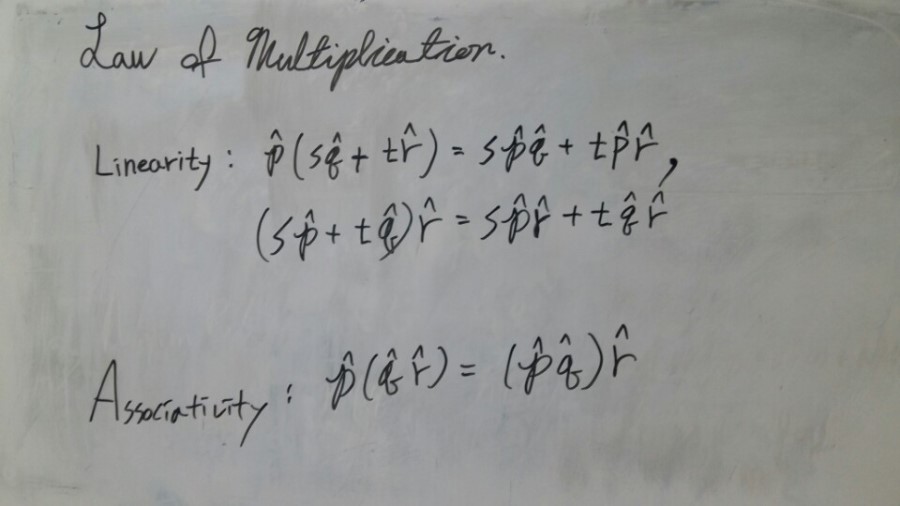 Law of Multiplication.
Linearity: p̂(sq̂ + tr̂) = sp̂q̂ + tp̂r̂,
(sp̂ + tq̂)r̂ = sp̂r̂ + tq̂r̂
Associativity: p̂(q̂r̂) = (p̂q̂)r̂